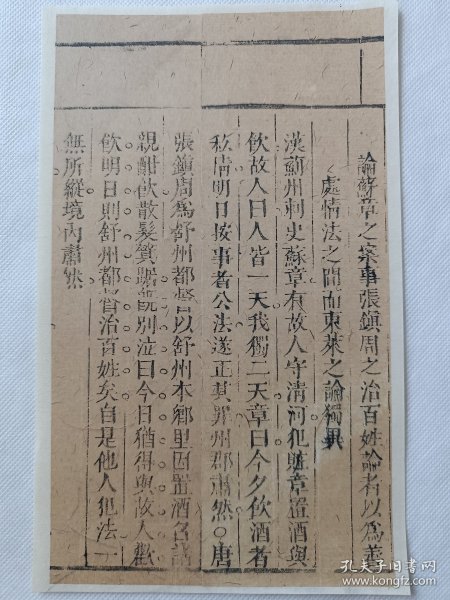 論蘇章之案事張鎮周之治百姓論者以為善
處情法之間而東萊之論獨異
漢薊州刺史蘇章有故人守清河犯賍章置酒與
飲故人曰人皆一天我獨二天章曰今夕飲酒者
私情明日按事者公法遂正其罪州郡肅然○唐
張鎮周為舒州都督以舒州本鄉里因置酒召
親酣飲散髮箕踞既別泣曰今日猶得與故人歡
飲明日則舒州都督治百姓矣自是他人犯法一
無所縱境內肅然
孔夫子旧书网
www.kongfz.com